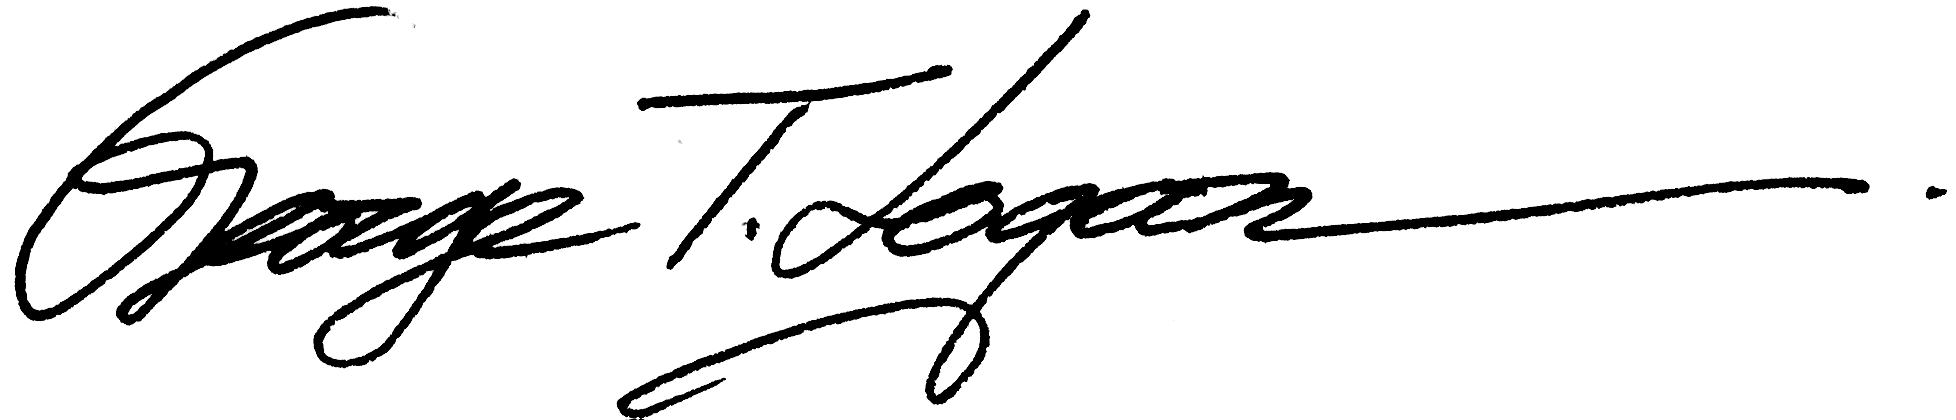 George T. Logan